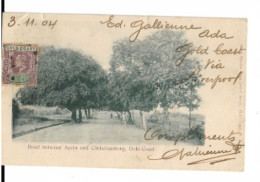 3.11.04
Ed. Gallienne
Ada
Gold Coast
Via
Liverpool
GOLD COAST
Road between Accra and Christiansborg, Gold-Coast
Compliments
Gallienne